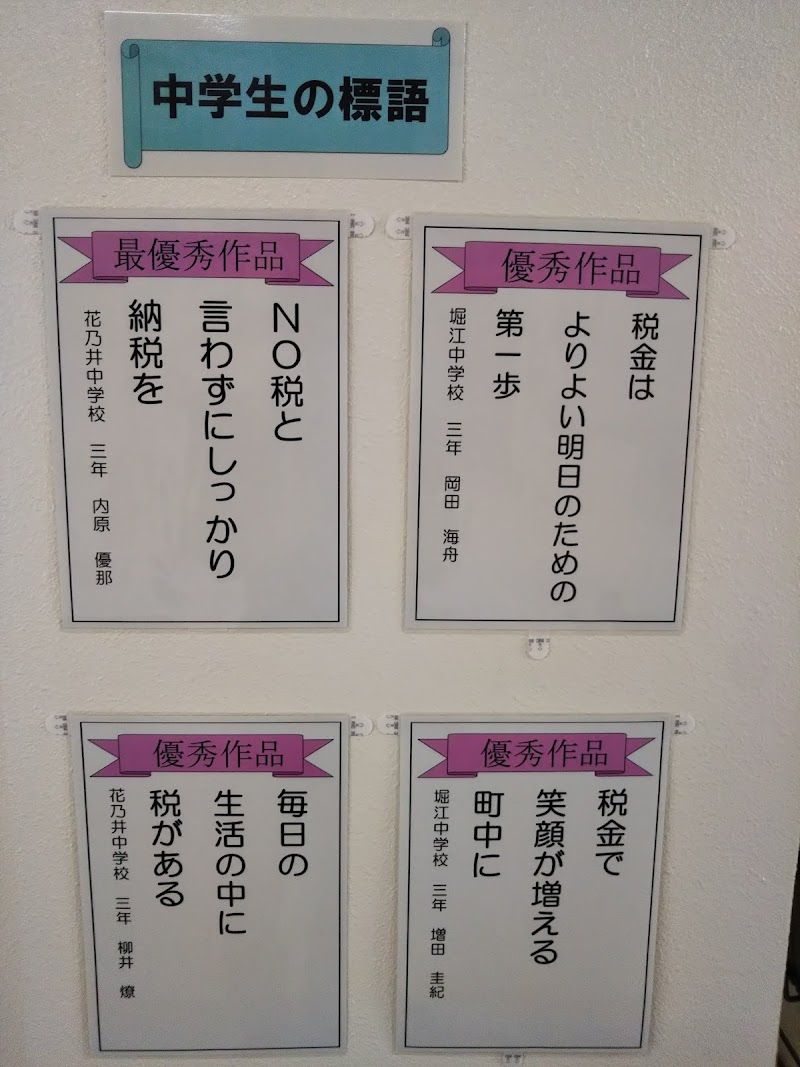 中学生の標語
最優秀作品
NO税と
言わずにしっかり
納税を
花乃井中学校 三年 内原 優那
優秀作品
税金は
よりよい明日のための
第一歩
堀江中学校 三年 岡田 海舟
優秀作品
毎日の
生活の中に
税がある
花乃井中学校 三年 柳井 燎
優秀作品
税金で
笑顔が増える
町中に
堀江中学校 三年 増田 圭紀